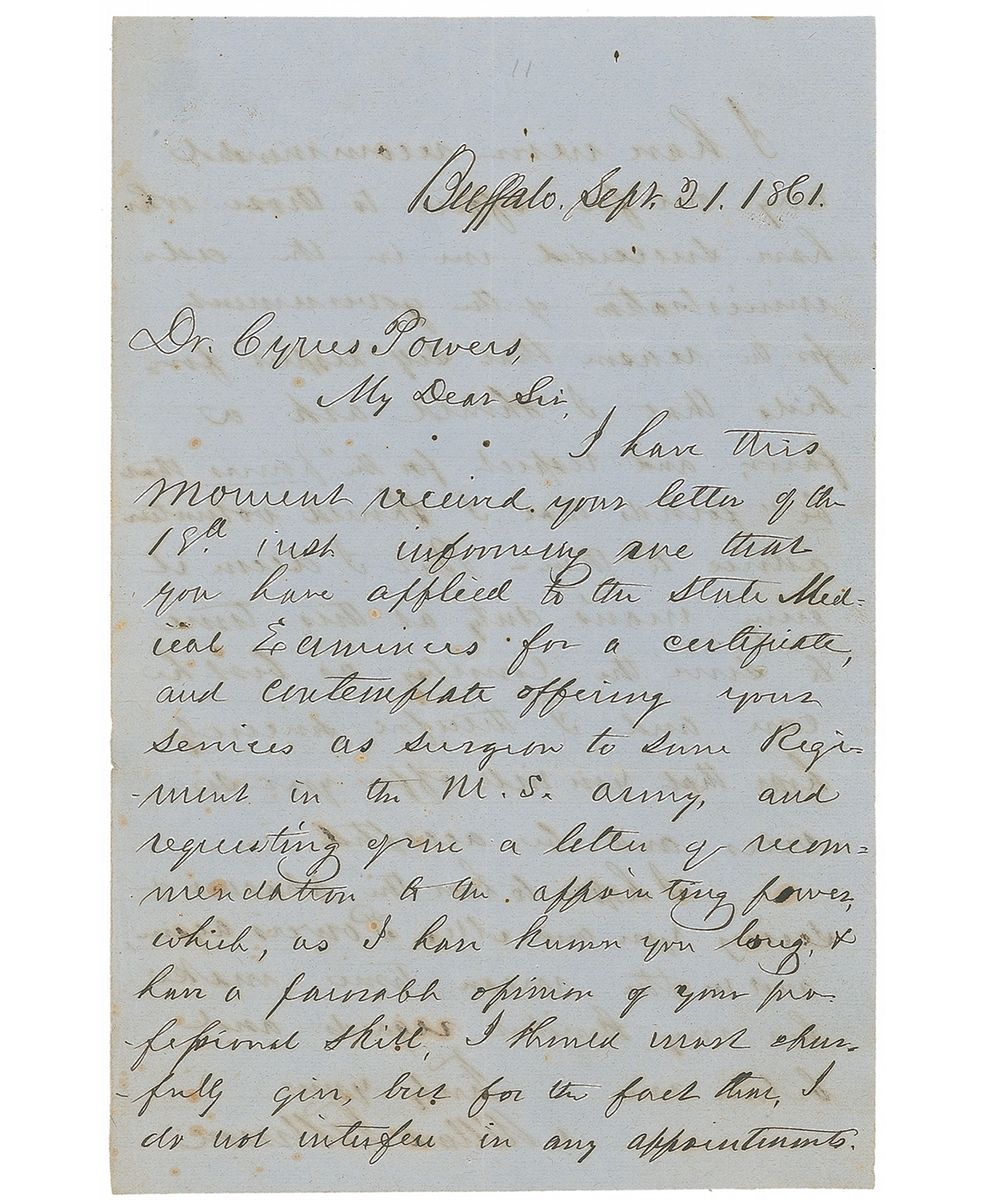 Buffalo. Sept. 21. 1861.
Dr. Cyrus Powers,
My Dear Sir,
I have this
moment received your letter of the
18th inst informing me that
you have applied to the State Med=
ical Examiners for a certificate,
and contemplate offering your
services as surgeon to some Regi-
-ment in the U. S. army, and
requesting of me a letter of recom=
mendation to the appointing power,
which, as I have known you long, &
have a favorable opinion of your pro-
-fessional skill, I should most cheer-
-fully give, but for the fact that, I
do not interfere in any appointments.